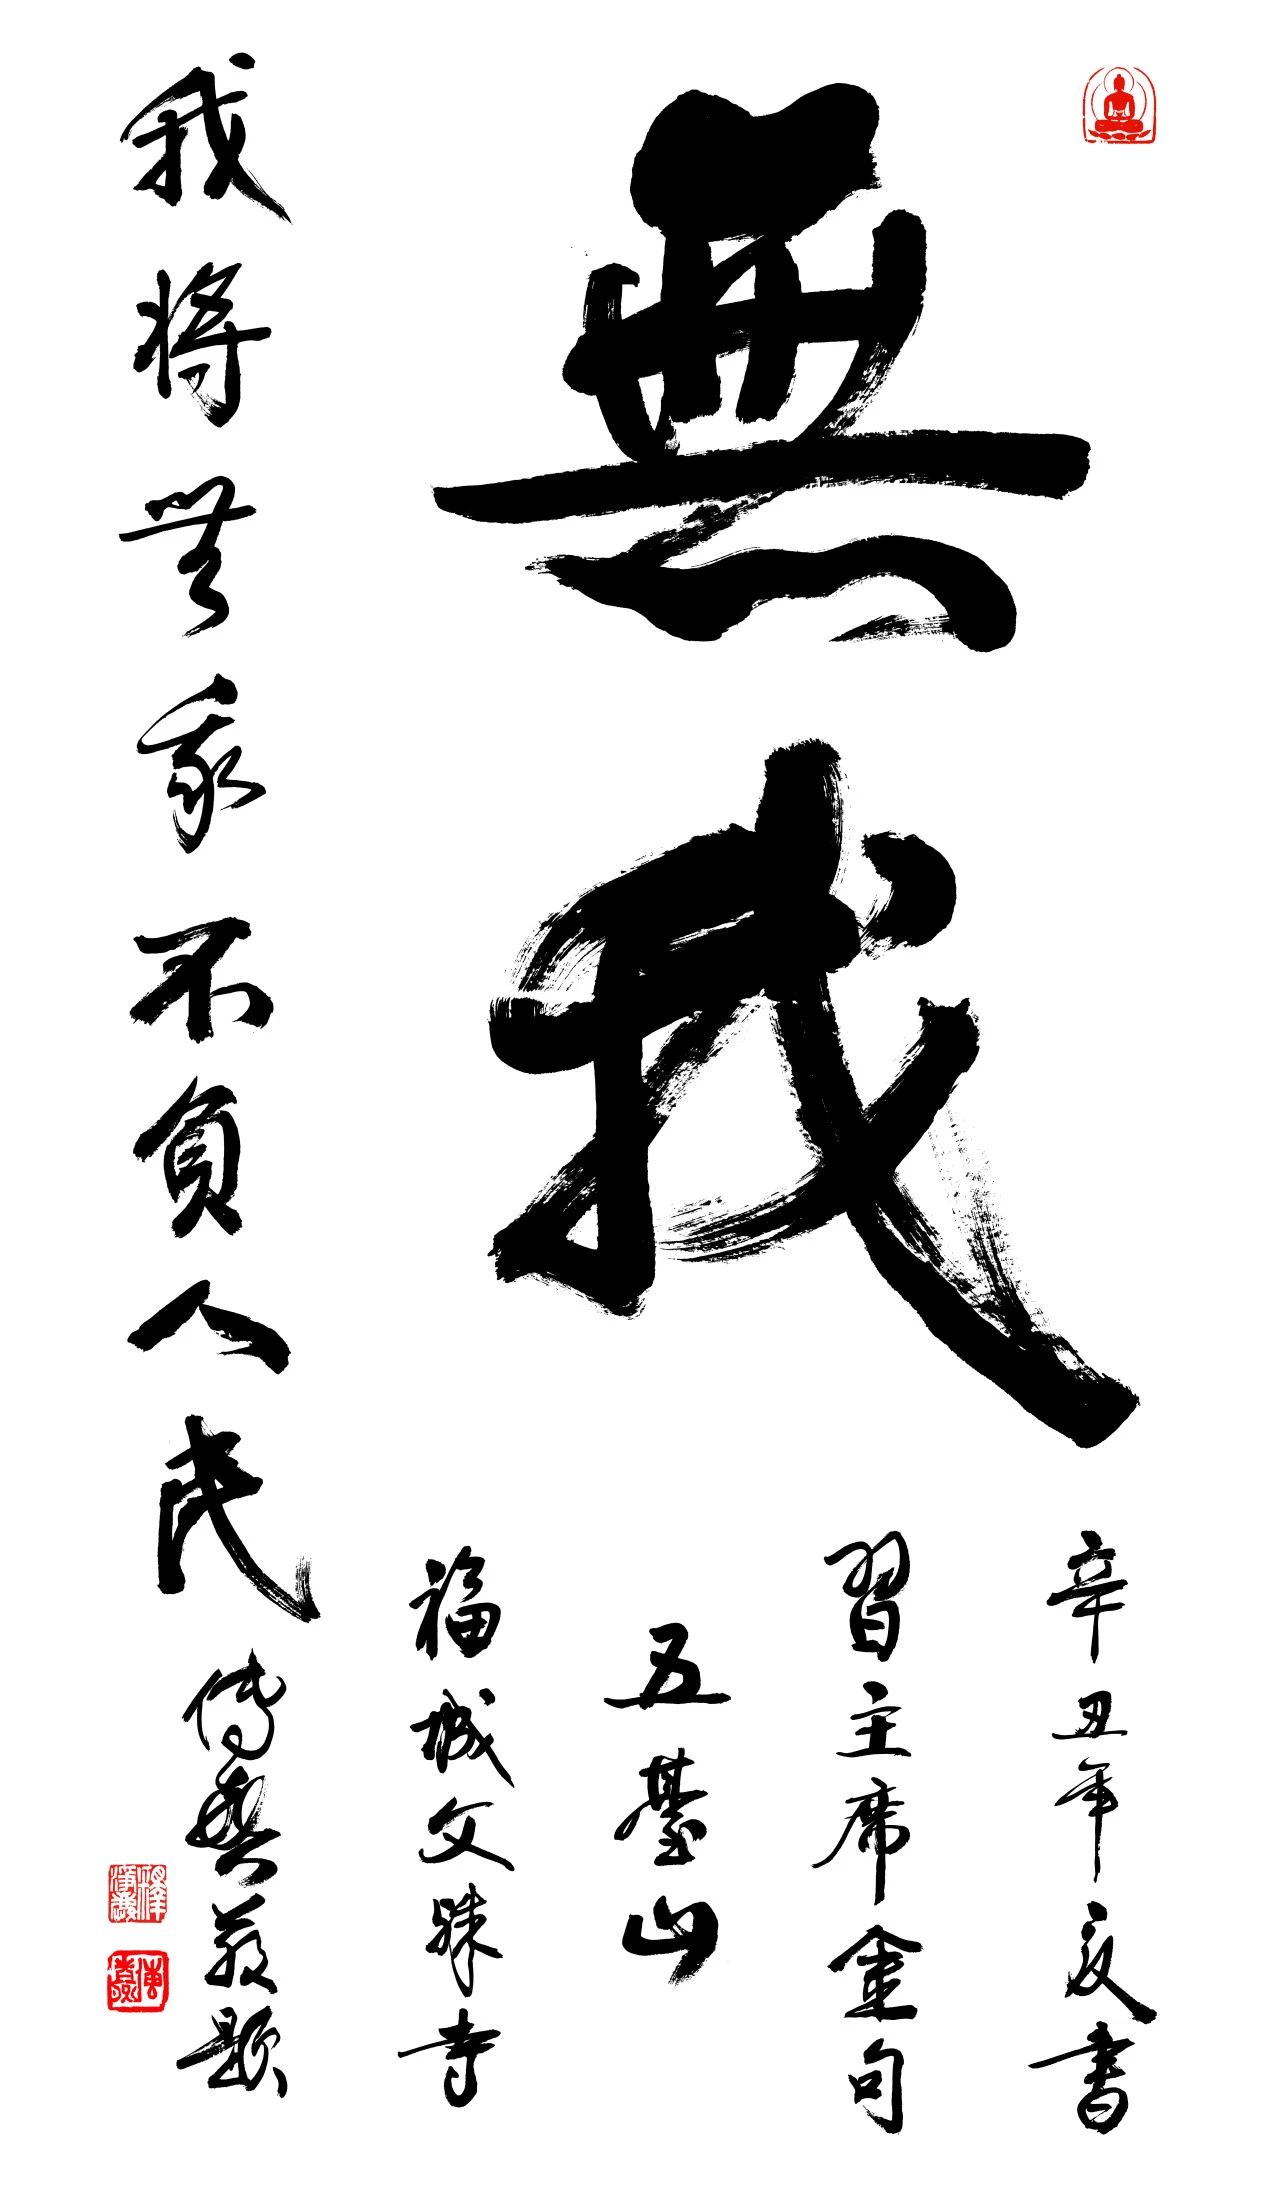 無我
辛丑年夏書
習主席金句
五臺山
福城文殊寺
我将無我不負人民
傳題